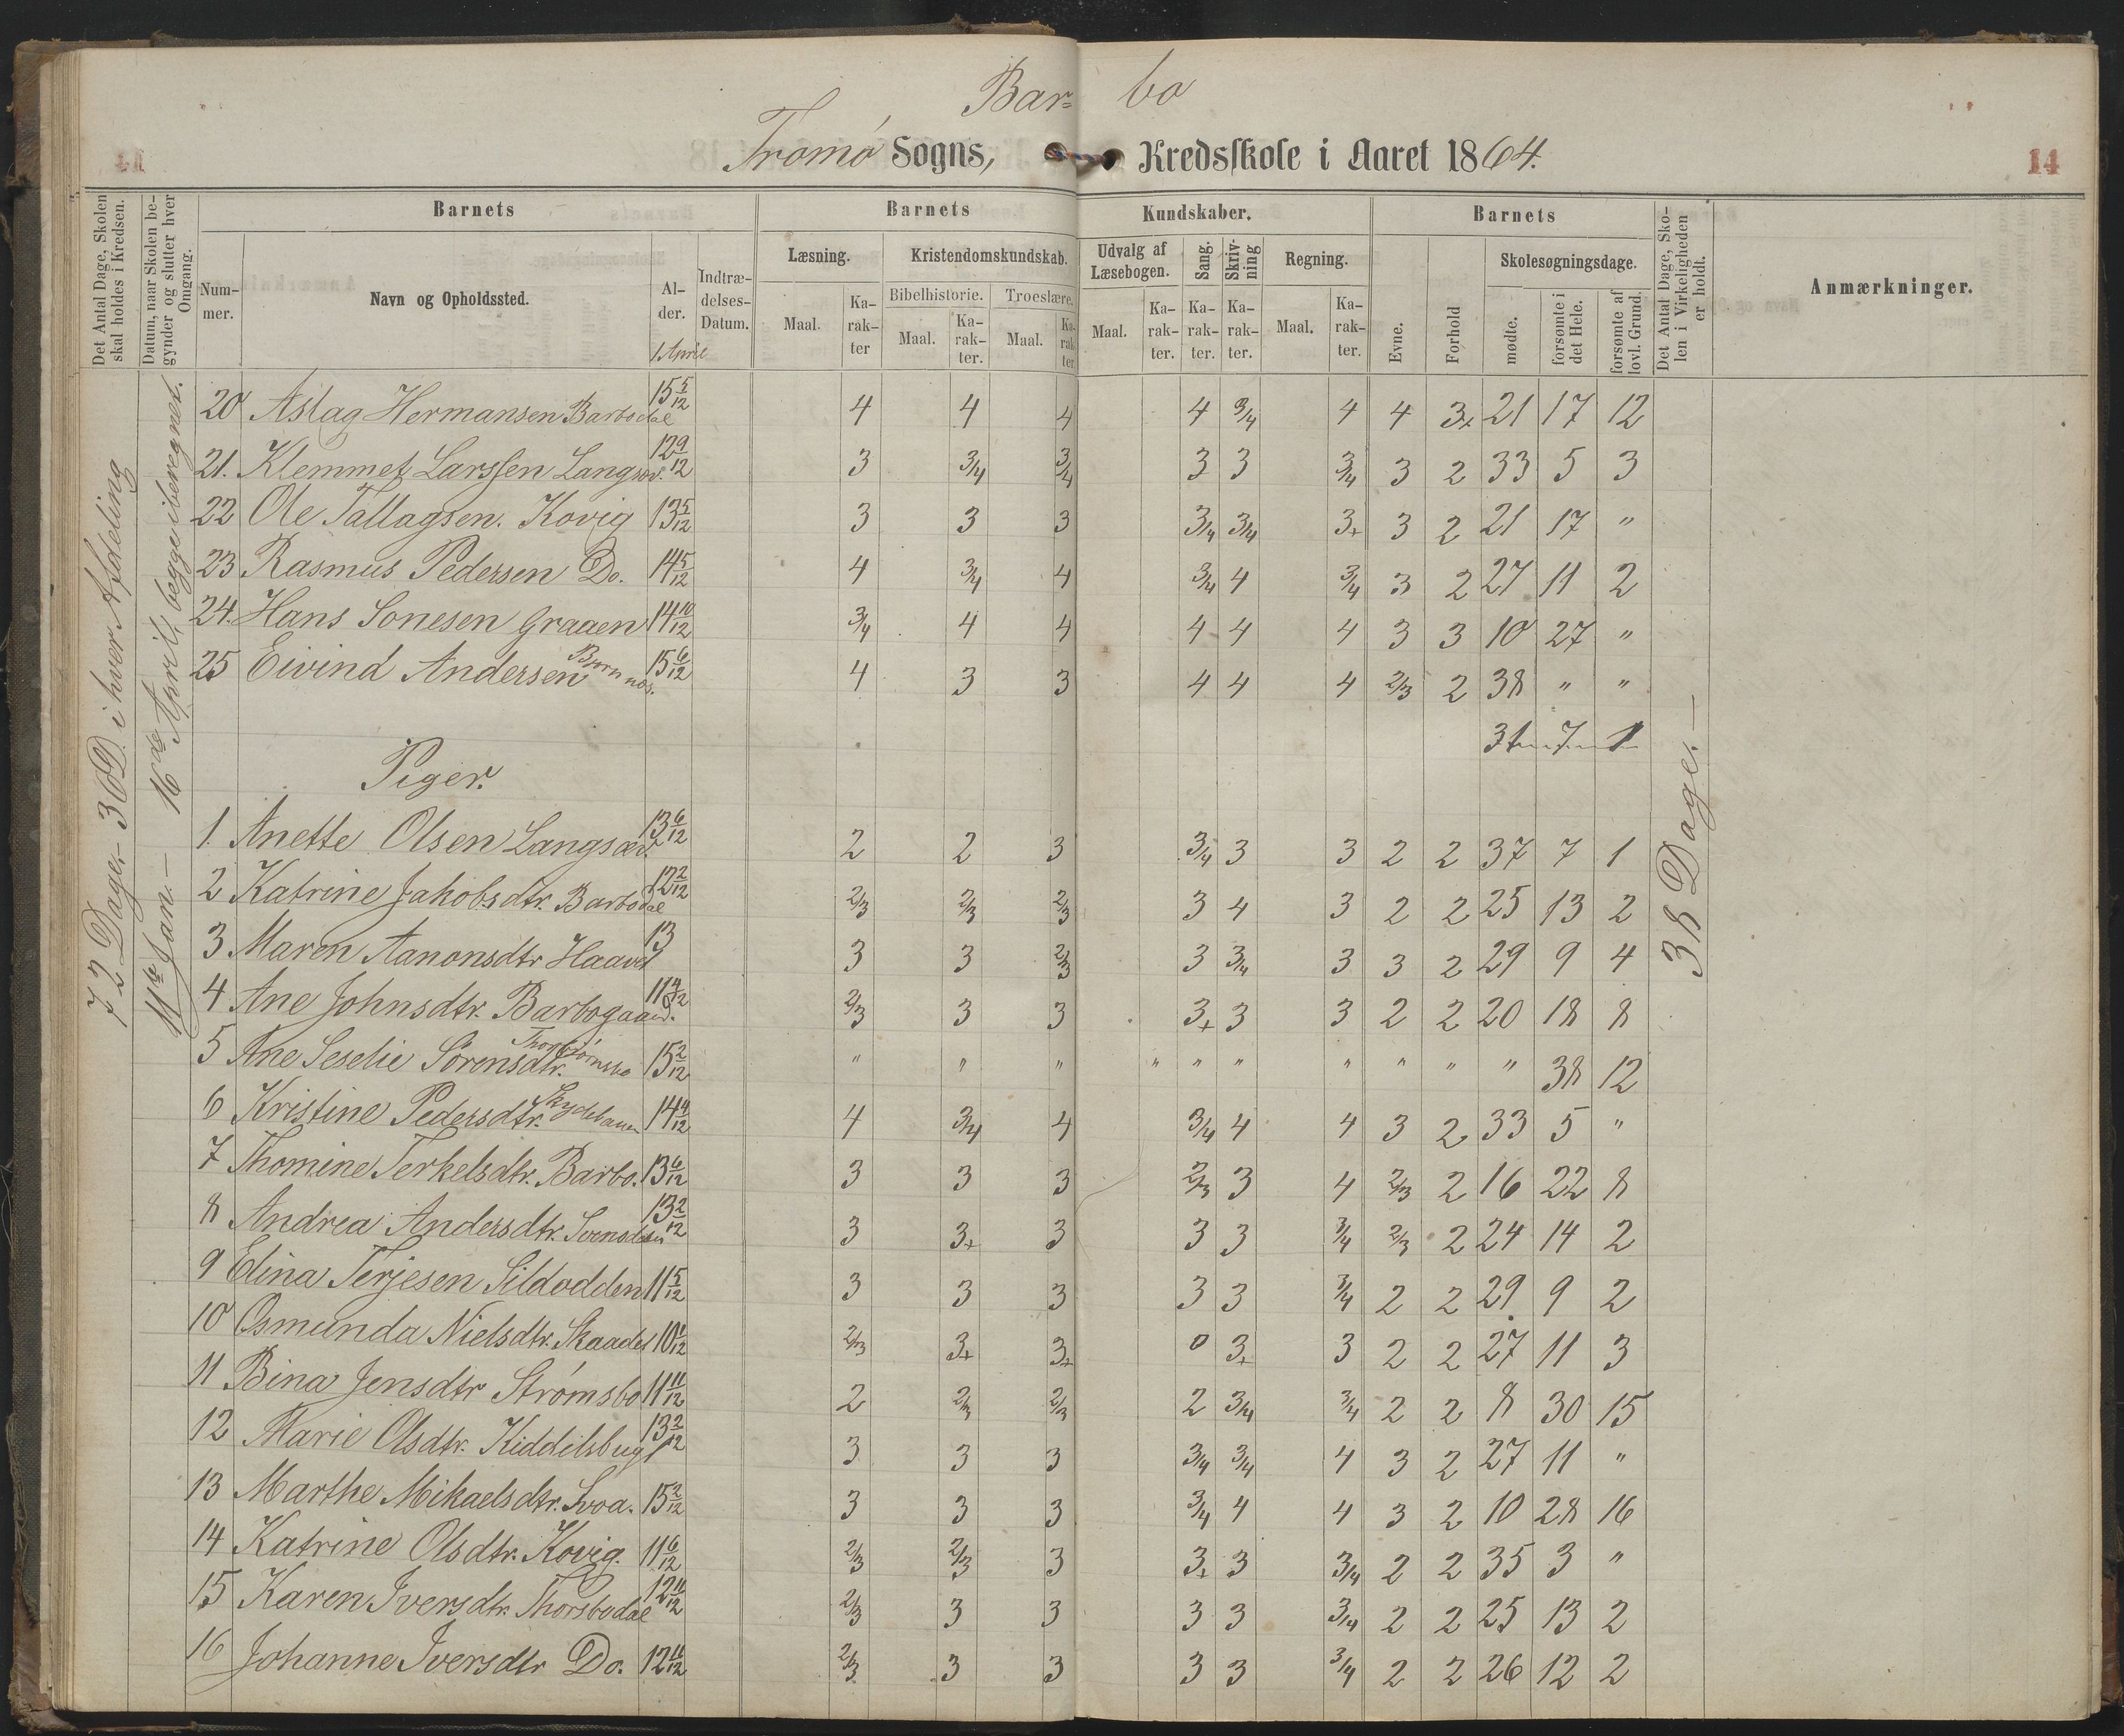 Bar= bo
Tromø Sogns, Kredsskole i Aaret 1864.
14
Det Antal Dage, Skolen skal holdes i Kredsen.
Datum, naar Skolen begynder og slutter hver Omgang.
Barnets
Barnets Kundskaber.
Barnets
Det Antal Dage, Skolen i Virkeligheden er holdt.
Anmærkninger.
Nummer.
Navn og Opholdssted.
Alder.
1 April
Indtrædelses-Datum.
Læsning.
Kristendomskundskab.
Udvalg af Læsebogen.
Sang.
Skrivning
Regning.
Evne.
Forhold
Skolesøgningsdage.
Bibelhistorie.
Troeslære.
Maal. Karakter
Maal. Karakter.
Maal. Karakter
Maal. Karakter.
Karakter.
Karakter.
Maal. Karakter.
mødte.
forsømte i det Hele.
forsømte af lovl. Grund.
72 Dage. 36 D. i hver Afdeling
11te Jan. — 16de April, begge iberegnet.
38 Dage. —
20 Aslag Hermansen Barbodal 15 5/12 4 4 4 4 3/4 4 4 3+ 21 17 12
21. Klemmet Larssen Langsæv. 12 9/12 3 3/4 3/4 3 3 3/4 3 2 33 5 3
22 Ole Tallagsen. Kovig 13 5/12 3 3 3 3/4 3/4 3+ 3 2 21 17 "
23 Rasmus Pedersen Do. 14 5/12 4 3/4 4 3/4 4 3/4 3 2 27 11 2
24. Hans Sonesen Graaen 14 10/12 3/4 4 4 4 4 4 3 3 10 27 "
25 Eivind Andersen Bjornnes. 15 6/12 4 3 3 4 4 4 2/3 2 38 " "
31 7 1
Piger.
1. Anette Olsen Langsæv. 13 6/12 2 2 3 3/4 3 3 2 2 37 7 1
2 Katrine Jakobsdtr. Barbodal 12 2/12 2/3 2/3 2/3 3 4 3 2 2 25 13 2
3 Maren Aanonsdtr Haavet 13 3 3 2/3 3 3/4 3 3 2 29 9 4
4 Ane Johnsdtr. Barbogaard. 11 9/12 2/3 3 3 3+ 3 3 2 2 20 18 8
5 Ane Seselie Sørensdtr. Thorbjørnsbo 15 2/12 " " " " " " " " " " 38 12
6 Kristine Pedersdtr. 14 4/12 4 3/4 4 3/4 4 4 3 2 33 5 "
7 Thomine Terkelsdtr. Barbo. 13 6/12 3 3 3 2/3 3 4 2/3 2 16 22 8
8 Andrea Andersdtr. 13 2/12 3 3+ 3 3 3 3/4 2/3 2 24 14 2
9 Elina Terjesen Sildodden 11 5/12 3 3 3 3 3 3/4 2 2 29 9 2
10 Osmunda Nielsdtr. Skaadel 10 1/12 2/3 3+ 3+ 0 3+ 3 2 2 27 11 3
11 Bina Jensdtr Strømsbo 11 11/12 2 2/3 2/3 2 3/4 3/4 2 2 8 30 15
12 Marie Olsdtr. Kiddelsbugt 13 2/12 3 3 3 3/4 3/4 4 3 2 27 11 "
13 Marthe Mikaelsdtr. Svoa. 15 2/12 3 3 3 3/4 4 4 3 2 10 28 16
14 Katrine Olsdtr. Kovig. 11 6/12 2/3 2/3 3 3+ 3 3/4 2 2 35 3 "
15 Karen Iversdtr. Thorsbudal 12 11/12 2/3 3 3 3 3 3/4 2 2 25 13 2
16 Johanne Iversdtr Do. 12 11/12 2/3 3 3 3 3 3/4 2 2 26 12 2